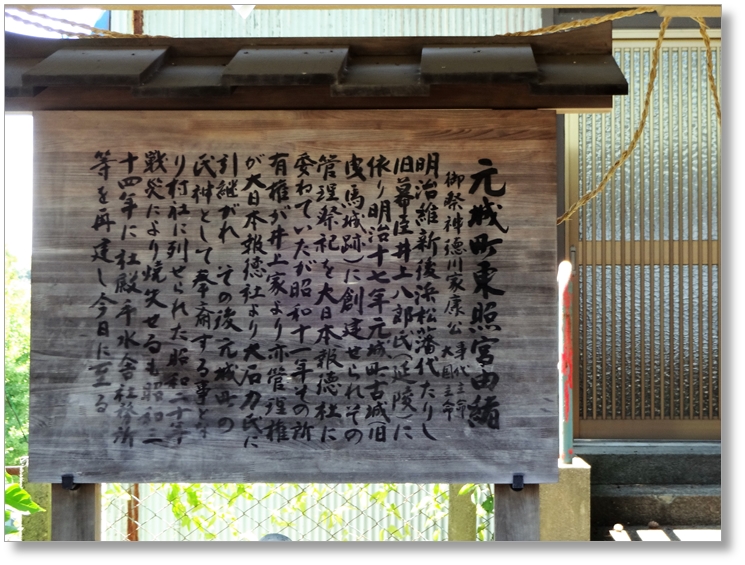 元城町東照宮由緒
御祭神徳川家康公 事代主命 大国主命
明治維新後浜松藩代たりし
旧幕臣井上八郎氏(延陵)に
依り明治十七年元城町古城(旧
曳馬城跡)に創建せられその
管理祭祀を大日本報徳社に
委ねていたが昭和十一年その所
有権が井上家より亦管理権
が大日本報徳社より大石力氏に
引継がれ、その後元城町の
氏神として奉斎する事とな
り村社に列せられた昭和二十年
戦災により焼失せるも昭和三
十四年に社殿手水舎社務所
等を再建し今日に至る